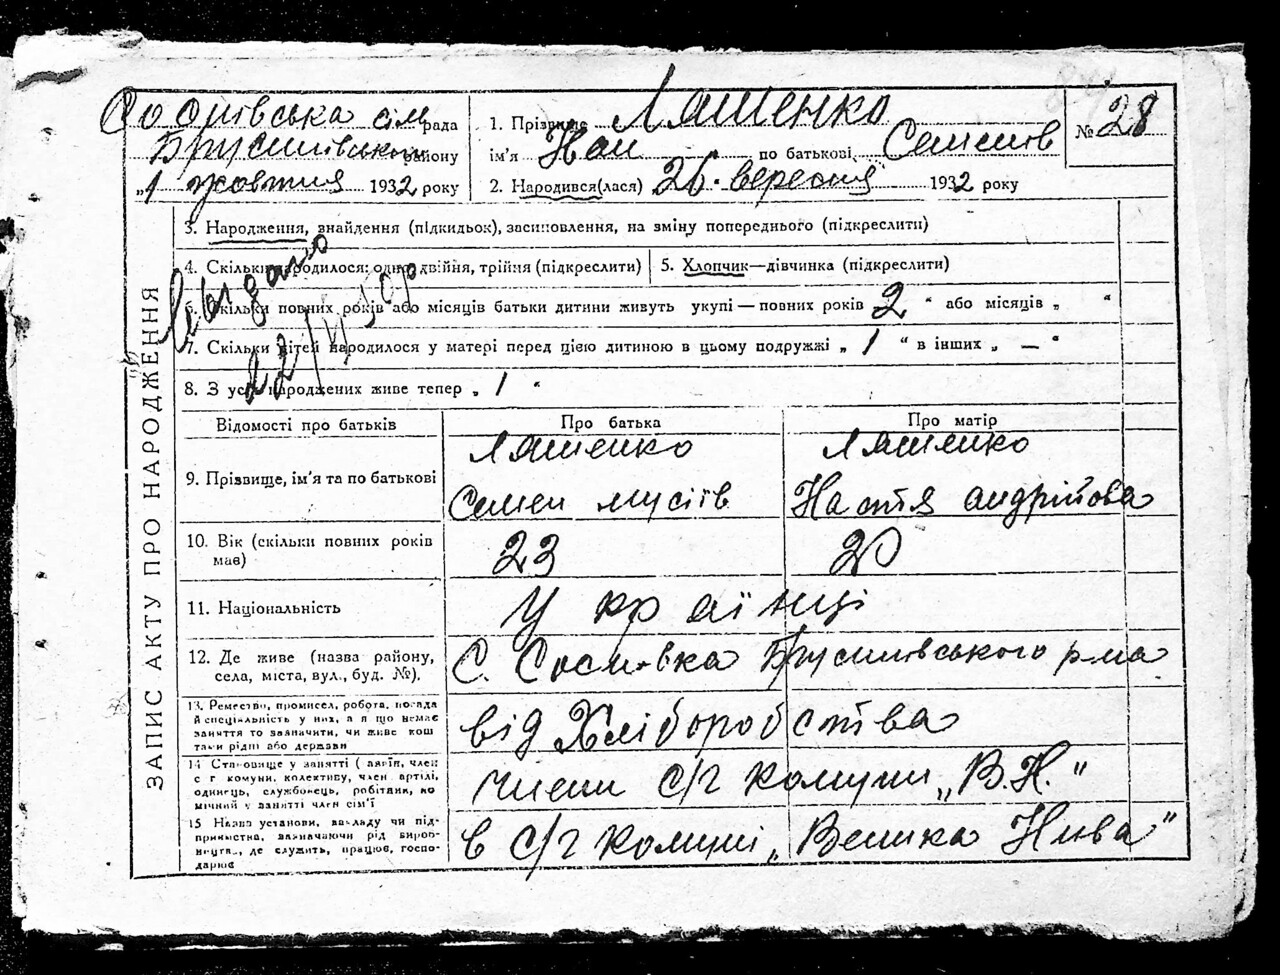 сільрада
Брусилівського району
„1 жовтня 1932 року
1. Прізвище Ляшенко
ім'я Іван по батькові Семенів
2. Народився(лася) 26 вересня 1932 року
№ 28
ЗАПИС АКТУ ПРО НАРОДЖЕННЯ
3. Народження, знайдення (підкидьок), засиновлення, на зміну попереднього (підкреслити)
4. Скільки народилося: одно, двійня, трійня (підкреслити)
5. Хлопчик—дівчинка (підкреслити)
6. Скільки повних років або місяців батьки дитини живуть укупі—повних років 2 “ або місяців „ “
7. Скільки дітей народилося у матері перед цією дитиною в цьому подружжі „ 1 “ в інших „ — “
8. З усіх народжених живе тепер „ 1 “
Відомості про батьків Про батька Про матір
9. Прізвище, ім'я та по батькові
Ляшенко Ляшенко
Семен мусіїв Настя андрійова
10. Вік (скільки повних років має) 23 20
11. Національність українці
12. Де живе (назва району,
села, міста, вул., буд. №).
С. Соснівка Брусилівського р-на
13. Ремество, промисел, робота, посада
й спеціальність у них, а якщо немає
заняття то зазначити, чи живе кош
тами рідні або держави
від Хліборобства
14 Становище у занятті (
с г комуни, колективу, член артілі,
одинець, службовець, робітник,
член с/г комуни „В.Н.“
15 Назва установи, закладу чи під-
приємства, зазначаючи рід вироб-
ництва, де служить, працює, госпо-
дарює
в с/г комуні „Велика Нива“
22/